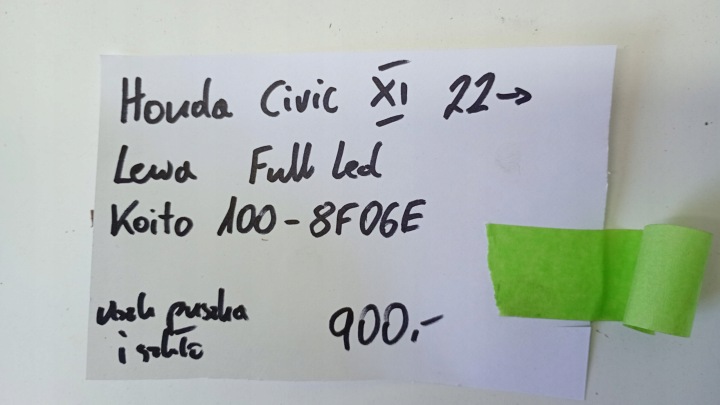 Honda Civic XI 22→
Lewa Full led
Koito 100-8F06E
uszk puszka
i szkło
900,-